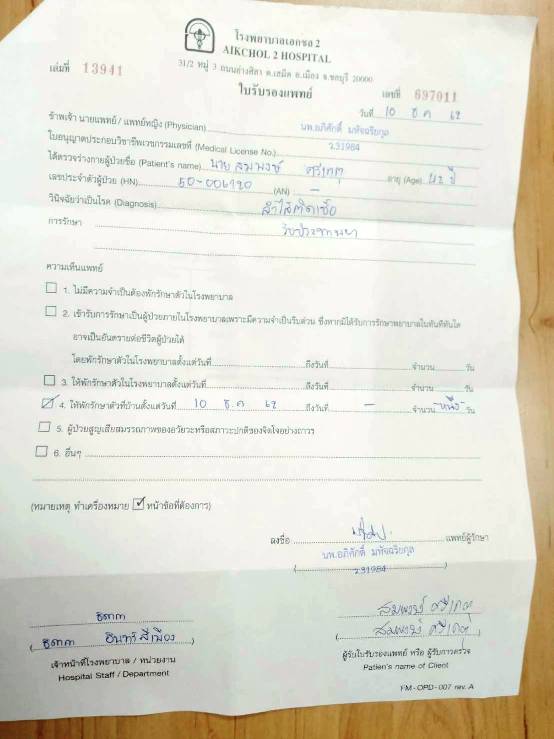 โรงพยาบาลเอกชล 2
AIKCHOL 2 HOSPITAL
31/2 หมู่ 3 ถนนอ่างศิลา ต.เสม็ด อ.เมือง จ.ชลบุรี 20000
เล่มที่ 13941
ใบรับรองแพทย์
เลขที่ 697011
วันที่ 10 ธ ค 62
ข้าพเจ้า นายแพทย์ / แพทย์หญิง (Physician) นพ.อภิศักดิ์ มหัจฉริยกุล
ใบอนุญาตประกอบวิชาชีพเวชกรรมเลขที่ (Medical License No.) ว.31984
ได้ตรวจร่างกายผู้ป่วยชื่อ (Patient's name) นาย สมพงษ์ ศรีเกตุ อายุ (Age) 42 ปี
เลขประจำตัวผู้ป่วย (HN) 50-006120 (AN) -
วินิจฉัยว่าเป็นโรค (Diagnosis) ลำไส้ติดเชื้อ
การรักษา รับประทานยา
ความเห็นแพทย์
1. ไม่มีความจำเป็นต้องพักรักษาตัวในโรงพยาบาล
2. เข้ารับการรักษาเป็นผู้ป่วยภายในโรงพยาบาลเพราะมีความจำเป็นรีบด่วน ซึ่งหากมิได้รับการรักษาพยาบาลในทันทีทันใด
อาจเป็นอันตรายต่อชีวิตผู้ป่วยได้
โดยพักรักษาตัวในโรงพยาบาลตั้งแต่วันที่ ถึงวันที่ จำนวน วัน
3. ให้พักรักษาตัวในโรงพยาบาลตั้งแต่วันที่ ถึงวันที่ จำนวน วัน
4. ให้พักรักษาตัวที่บ้านตั้งแต่วันที่ 10 ธ.ค 62 ถึงวันที่ - จำนวน "หนึ่ง" วัน
5. ผู้ป่วยสูญเสียสมรรถภาพของอวัยวะหรือสภาวะปกติของจิตใจอย่างถาวร
6. อื่นๆ
(หมายเหตุ ทำเครื่องหมาย ☑ หน้าข้อที่ต้องการ)
ลงชื่อ แพทย์ผู้รักษา
นพ.อภิศักดิ์ มหัจฉริยกุล
( ว.31984 )
ธิดา
สมพงษ์ ศรีเกตุ
( สมพงษ์ ศรีเกตุ )
เจ้าหน้าที่โรงพยาบาล / หน่วยงาน
Hospital Staff / Department
ผู้รับใบรับรองแพทย์ หรือ ผู้รับการตรวจ
Patien's name of Client
FM-OPD-007 rev. A